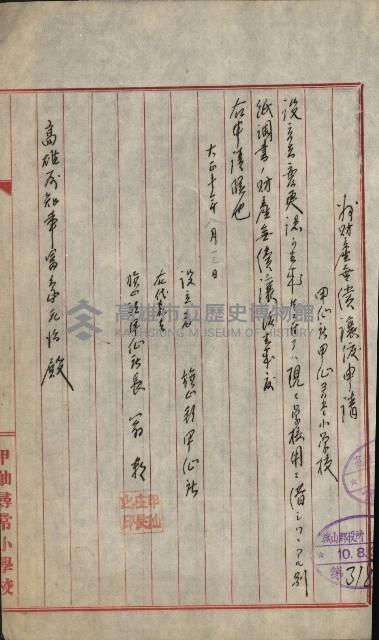 財産無償讓渡申請
甲仙庄甲仙尋常小學校
設立者變更認可相成候ニ付テハ現ニ學校用ニ借シツヽアル別
紙調書ノ財産無償讓渡相成度
右申請候也
大正十年八月三日
設立者 旗山郡甲仙庄
右代表者
旗山郡甲仙庄長
高雄州知事富島元治殿
甲仙
庄長
之印
甲仙尋常小學校
旗山郡役所
10.8.
第318
高雄市立歷史博物館
KAOHSIUNG MUSEUM OF HISTORY